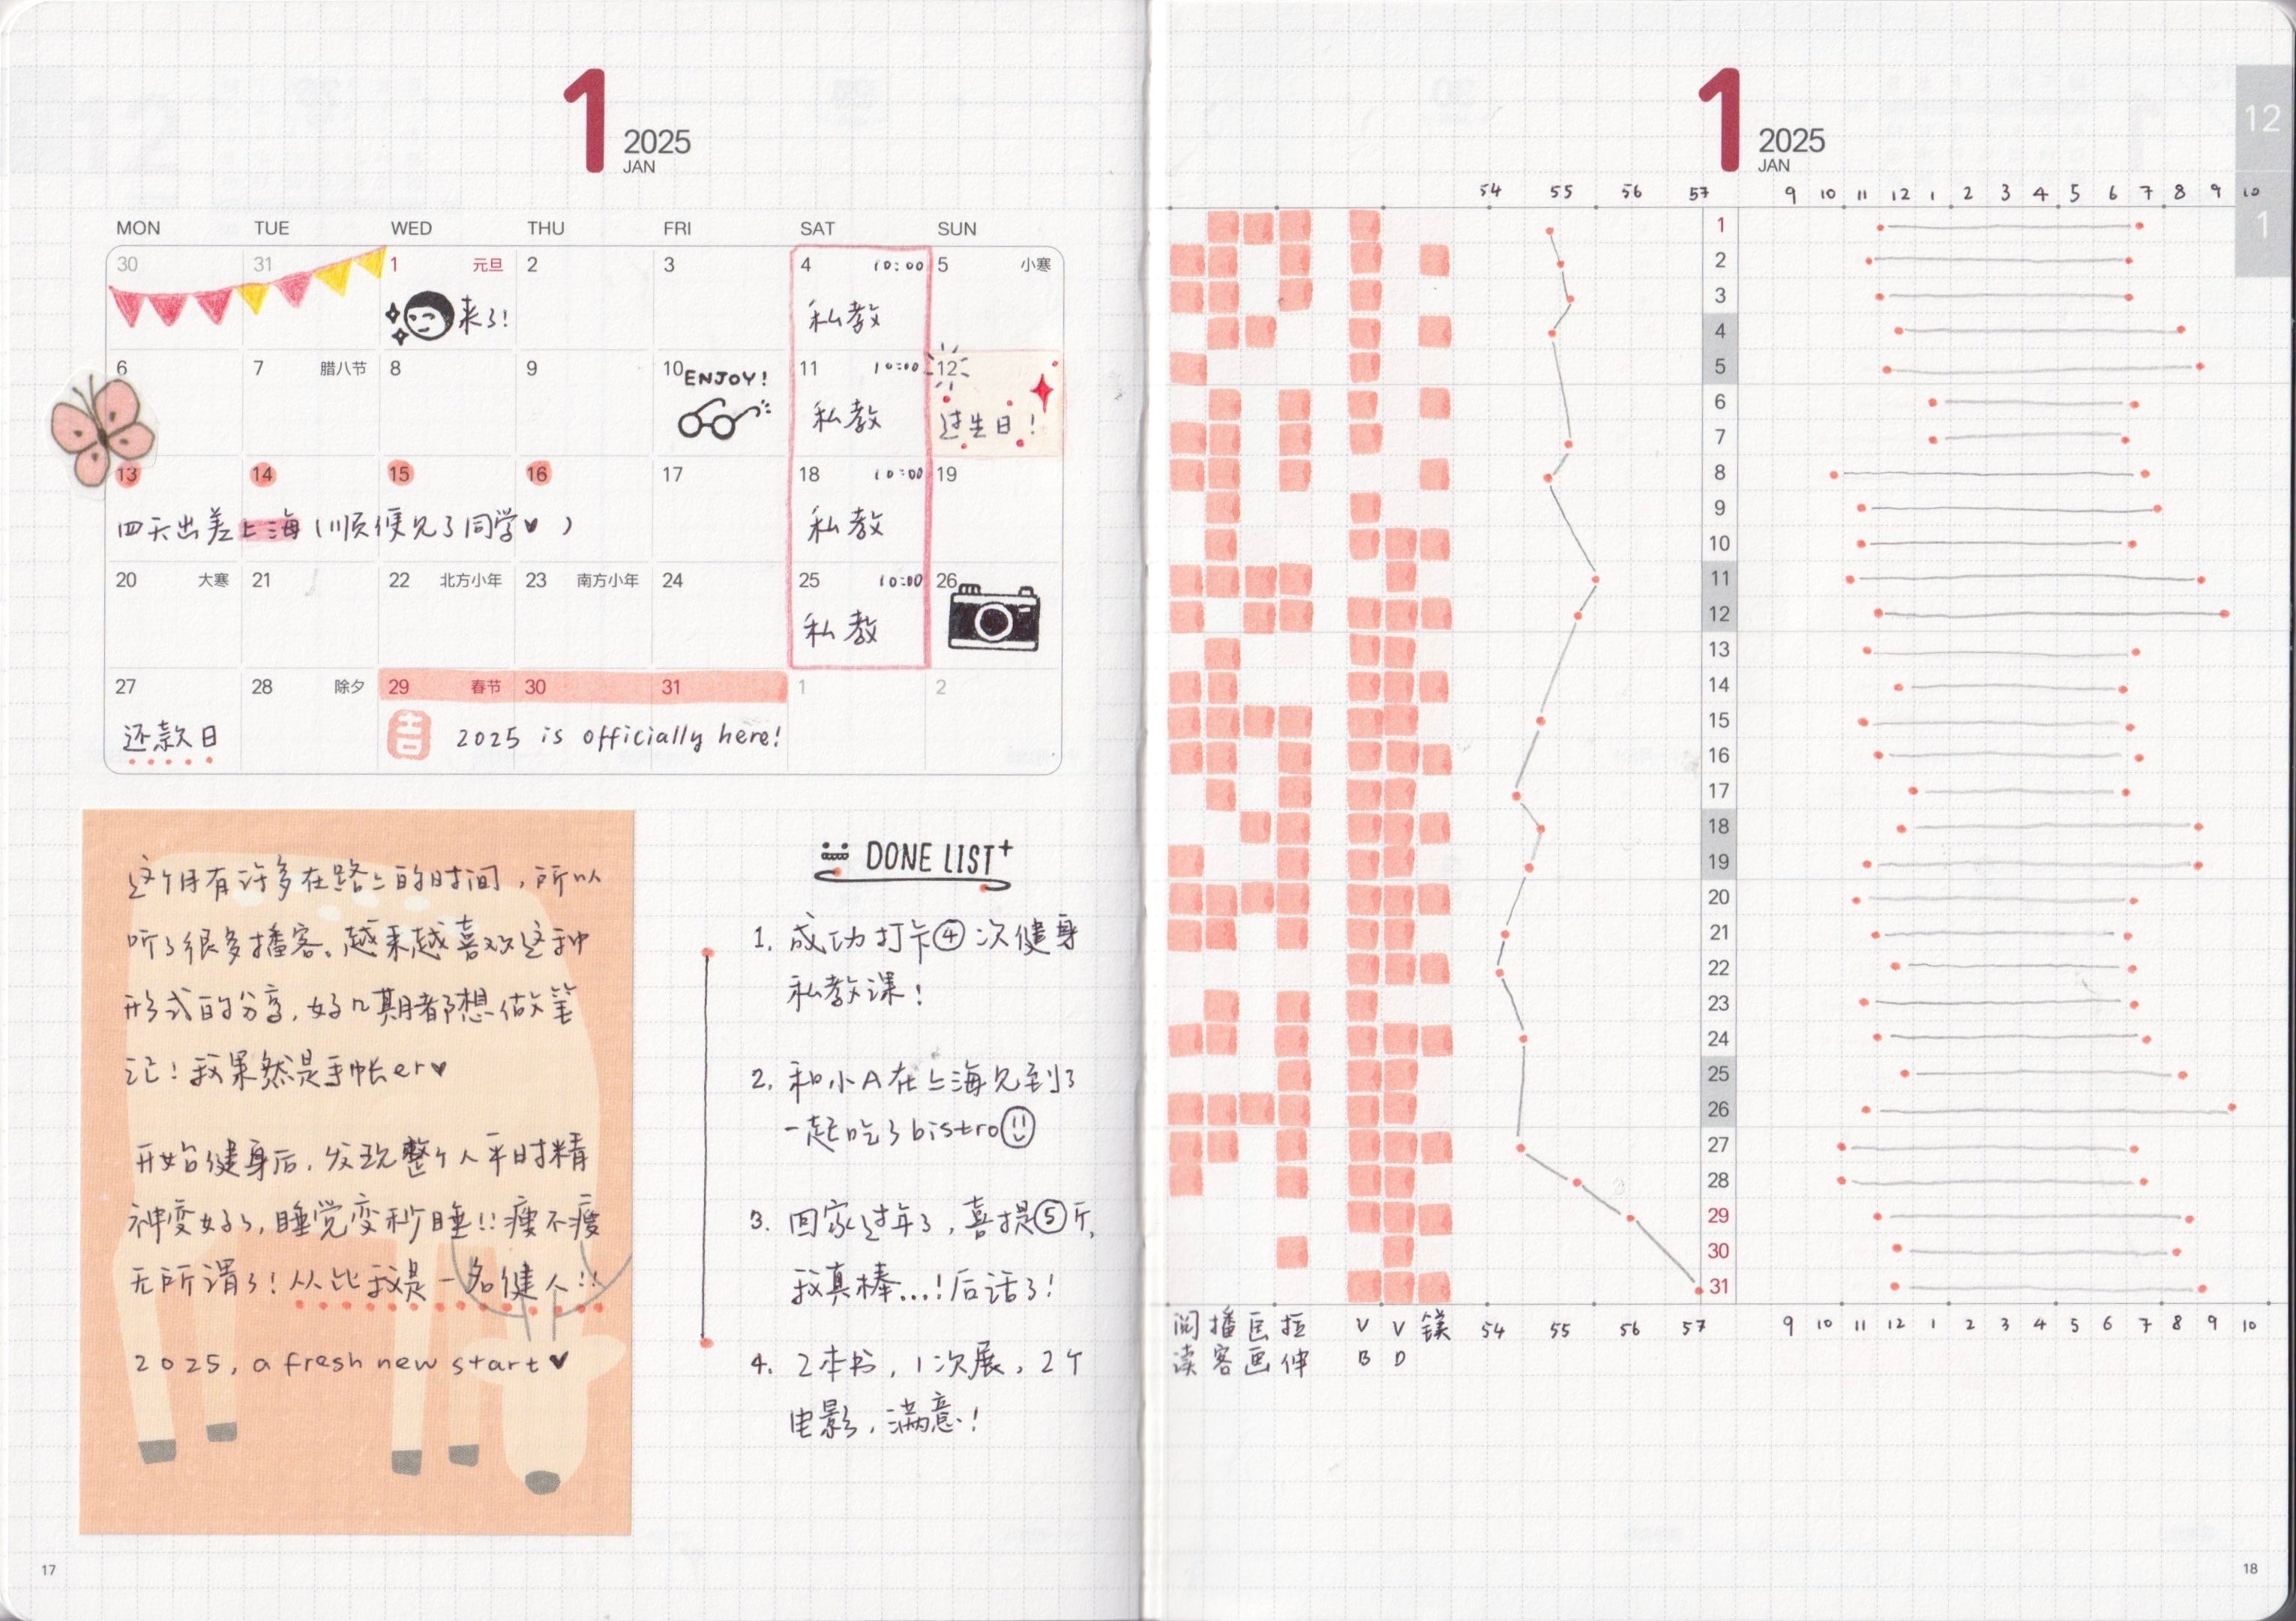 1
2025
JAN
MON TUE WED THU FRI SAT SUN
30 31 1 元旦 2 3 4 10:00 5 小寒
来了! 私教
6 7 腊八节 8 9 10 ENJOY! 11 10:00 12
私教 过生日!
13 14 15 16 17 18 10:00 19
四天出差上海(顺便见了同学♥)
私教
20 大寒 21 22 北方小年 23 南方小年 24 25 10:00 26
私教
27 28 除夕 29 春节 30 31 1 2
还款日 吉 2025 is officially here!
这个月有许多在路上的时间,所以
听了很多播客。越来越喜欢这种
形式的分享,好几期都想做笔
记!我果然是手帐er♥
开始健身后,发现整个人平时精
神变好了,睡觉变秒睡!!瘦不瘦
无所谓了!从此我是一名健人!!
2025, a fresh new start♥
DONE LIST+
1. 成功打卡④次健身
私教课!
2. 和小A在上海见到了
一起吃了bistro
3. 回家过年了,喜提⑤斤,
我真棒...!后话了!
4. 2本书,1次展,2个
电影,满意!
17
1
2025
JAN
12
1
54 55 56 57 9 10 11 12 1 2 3 4 5 6 7 8 9 10
1
2
3
4
5
6
7
8
9
10
11
12
13
14
15
16
17
18
19
20
21
22
23
24
25
26
27
28
29
30
31
阅 播 画 拉 V V 镁 54 55 56 57 9 10 11 12 1 2 3 4 5 6 7 8 9 10
读 客 画 伸 B D
18